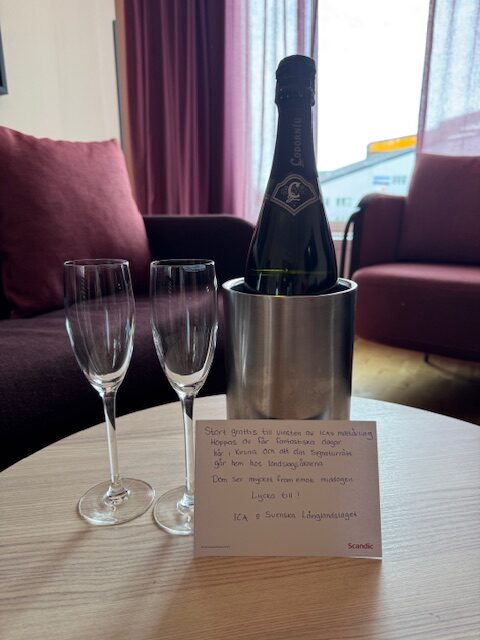 CODORNÍU
Stort grattis till vinsten av ICAs mattävling
Hoppas du får fantastiska dagar
här i Kiruna och att din Signaturrätt
går hem hos landslagsåkarna
Dom ser mycket fram emot middagen
Lycka till!
ICA & Svenska Längdlandslaget
Scandic